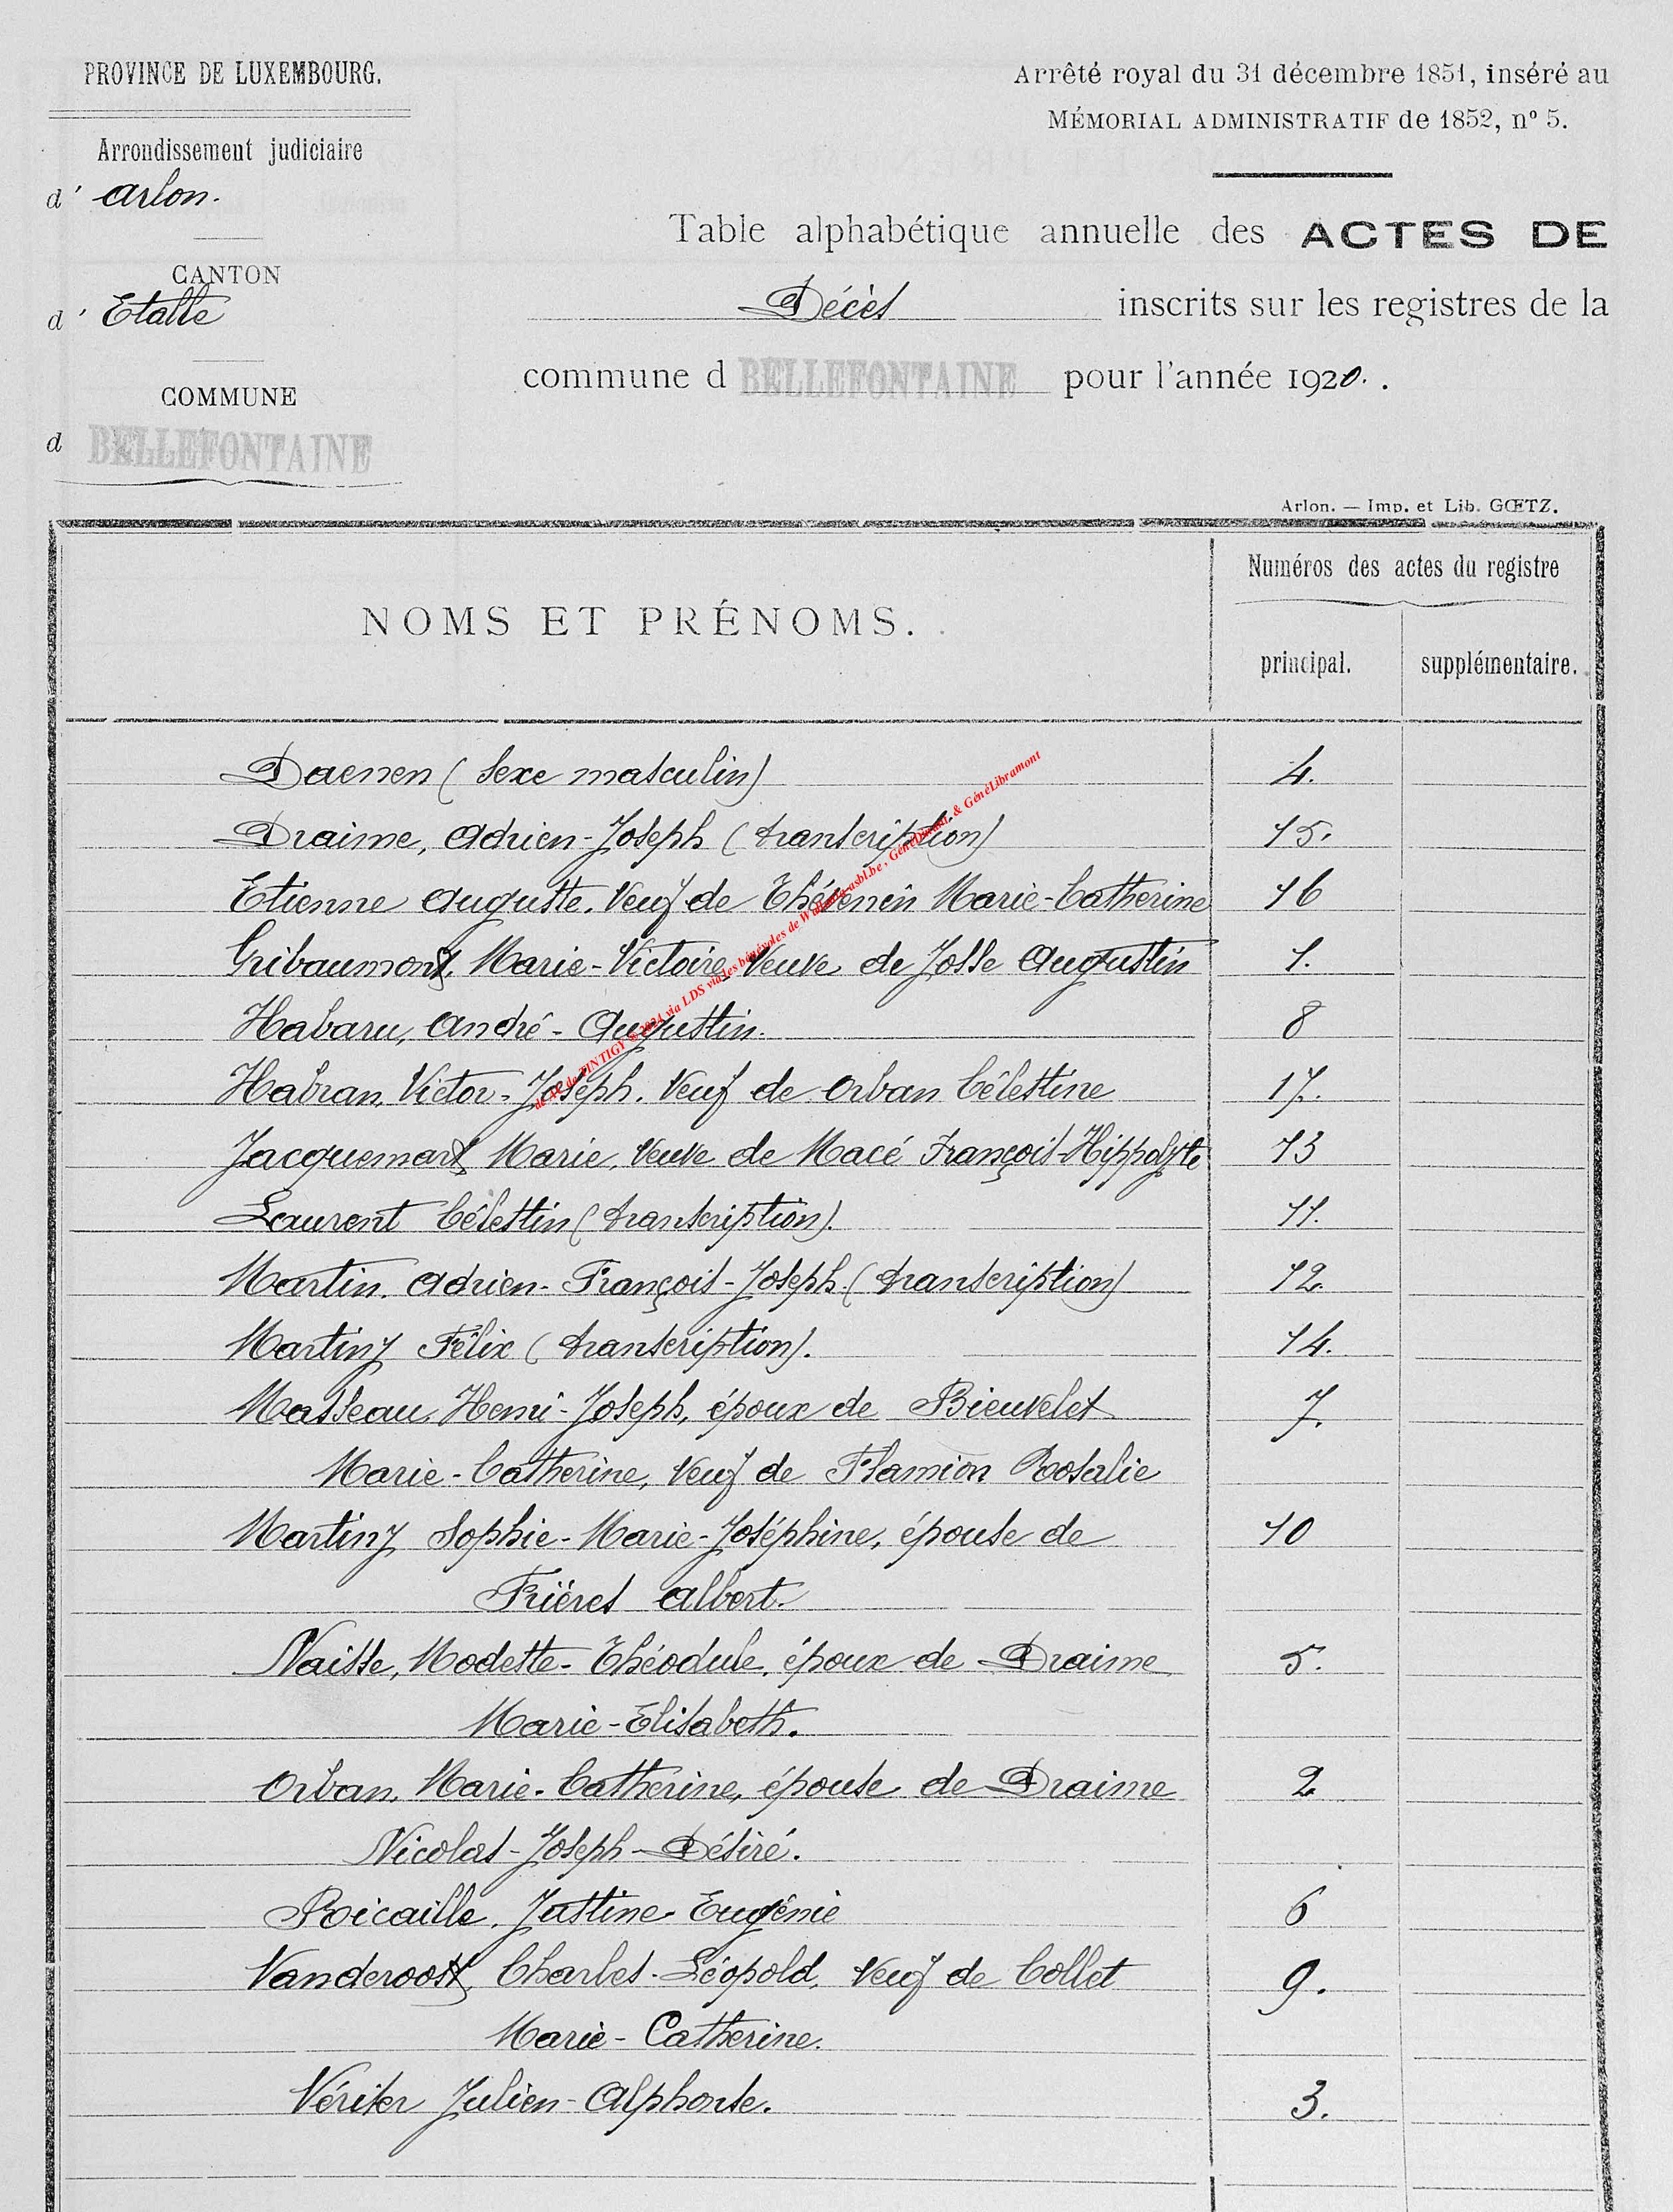 PROVINCE DE LUXEMBOURG.
Arrondissement judiciaire
d' Arlon.
CANTON
d' Etalle
COMMUNE
d BELLEFONTAINE
Arrêté royal du 31 décembre 1851, inséré au
MÉMORIAL ADMINISTRATIF de 1852, n° 5.
Table alphabétique annuelle des ACTES DE
Décès inscrits sur les registres de la
commune d BELLEFONTAINE pour l'année 1920.
Arlon. — Imp. et Lib. GŒTZ.
NOMS ET PRÉNOMS.
Numéros des actes du registre
principal. supplémentaire.
Daenen (sexe masculin) 4.
Draime, Adrien-Joseph (transcription) 15.
Etienne Auguste. Veuf de Thévenin Marie-Catherine 16
Gribaumont, Marie-Victoire, Veuve de Josse Augustin 1.
Habaru, André-Augustin. 8
Habran, Victor-Joseph. Veuf de Orban Célestine 17.
Jacquemart, Marie, Veuve de Macé François-Hippolyte 13
Laurent Célestin (transcription). 11.
Martin. Adrien-François-Joseph. (transcription) 12.
Martiny Félix (transcription). 14.
Masseau, Henri-Joseph, époux de Bieuvelet 7.
Marie-Catherine, Veuf de Flamion Rosalie
Martiny Sophie-Marie-Joséphine, épouse de 10
Frières Albert.
Naisse, Modeste-Théodule, époux de Draime 5.
Marie-Elisabeth.
Orban, Marie-Catherine, épouse de Draime 2
Nicolas-Joseph-Désiré.
Roicaille, Justine-Eugénie 6
Vanderoost, Charles-Léopold, Veuf de Collet 9.
Marie-Catherine.
Vériter Julien-Alphonse. 3.
TINTIGY © 2024 via LDS via les bénévoles de & GénéLibramont